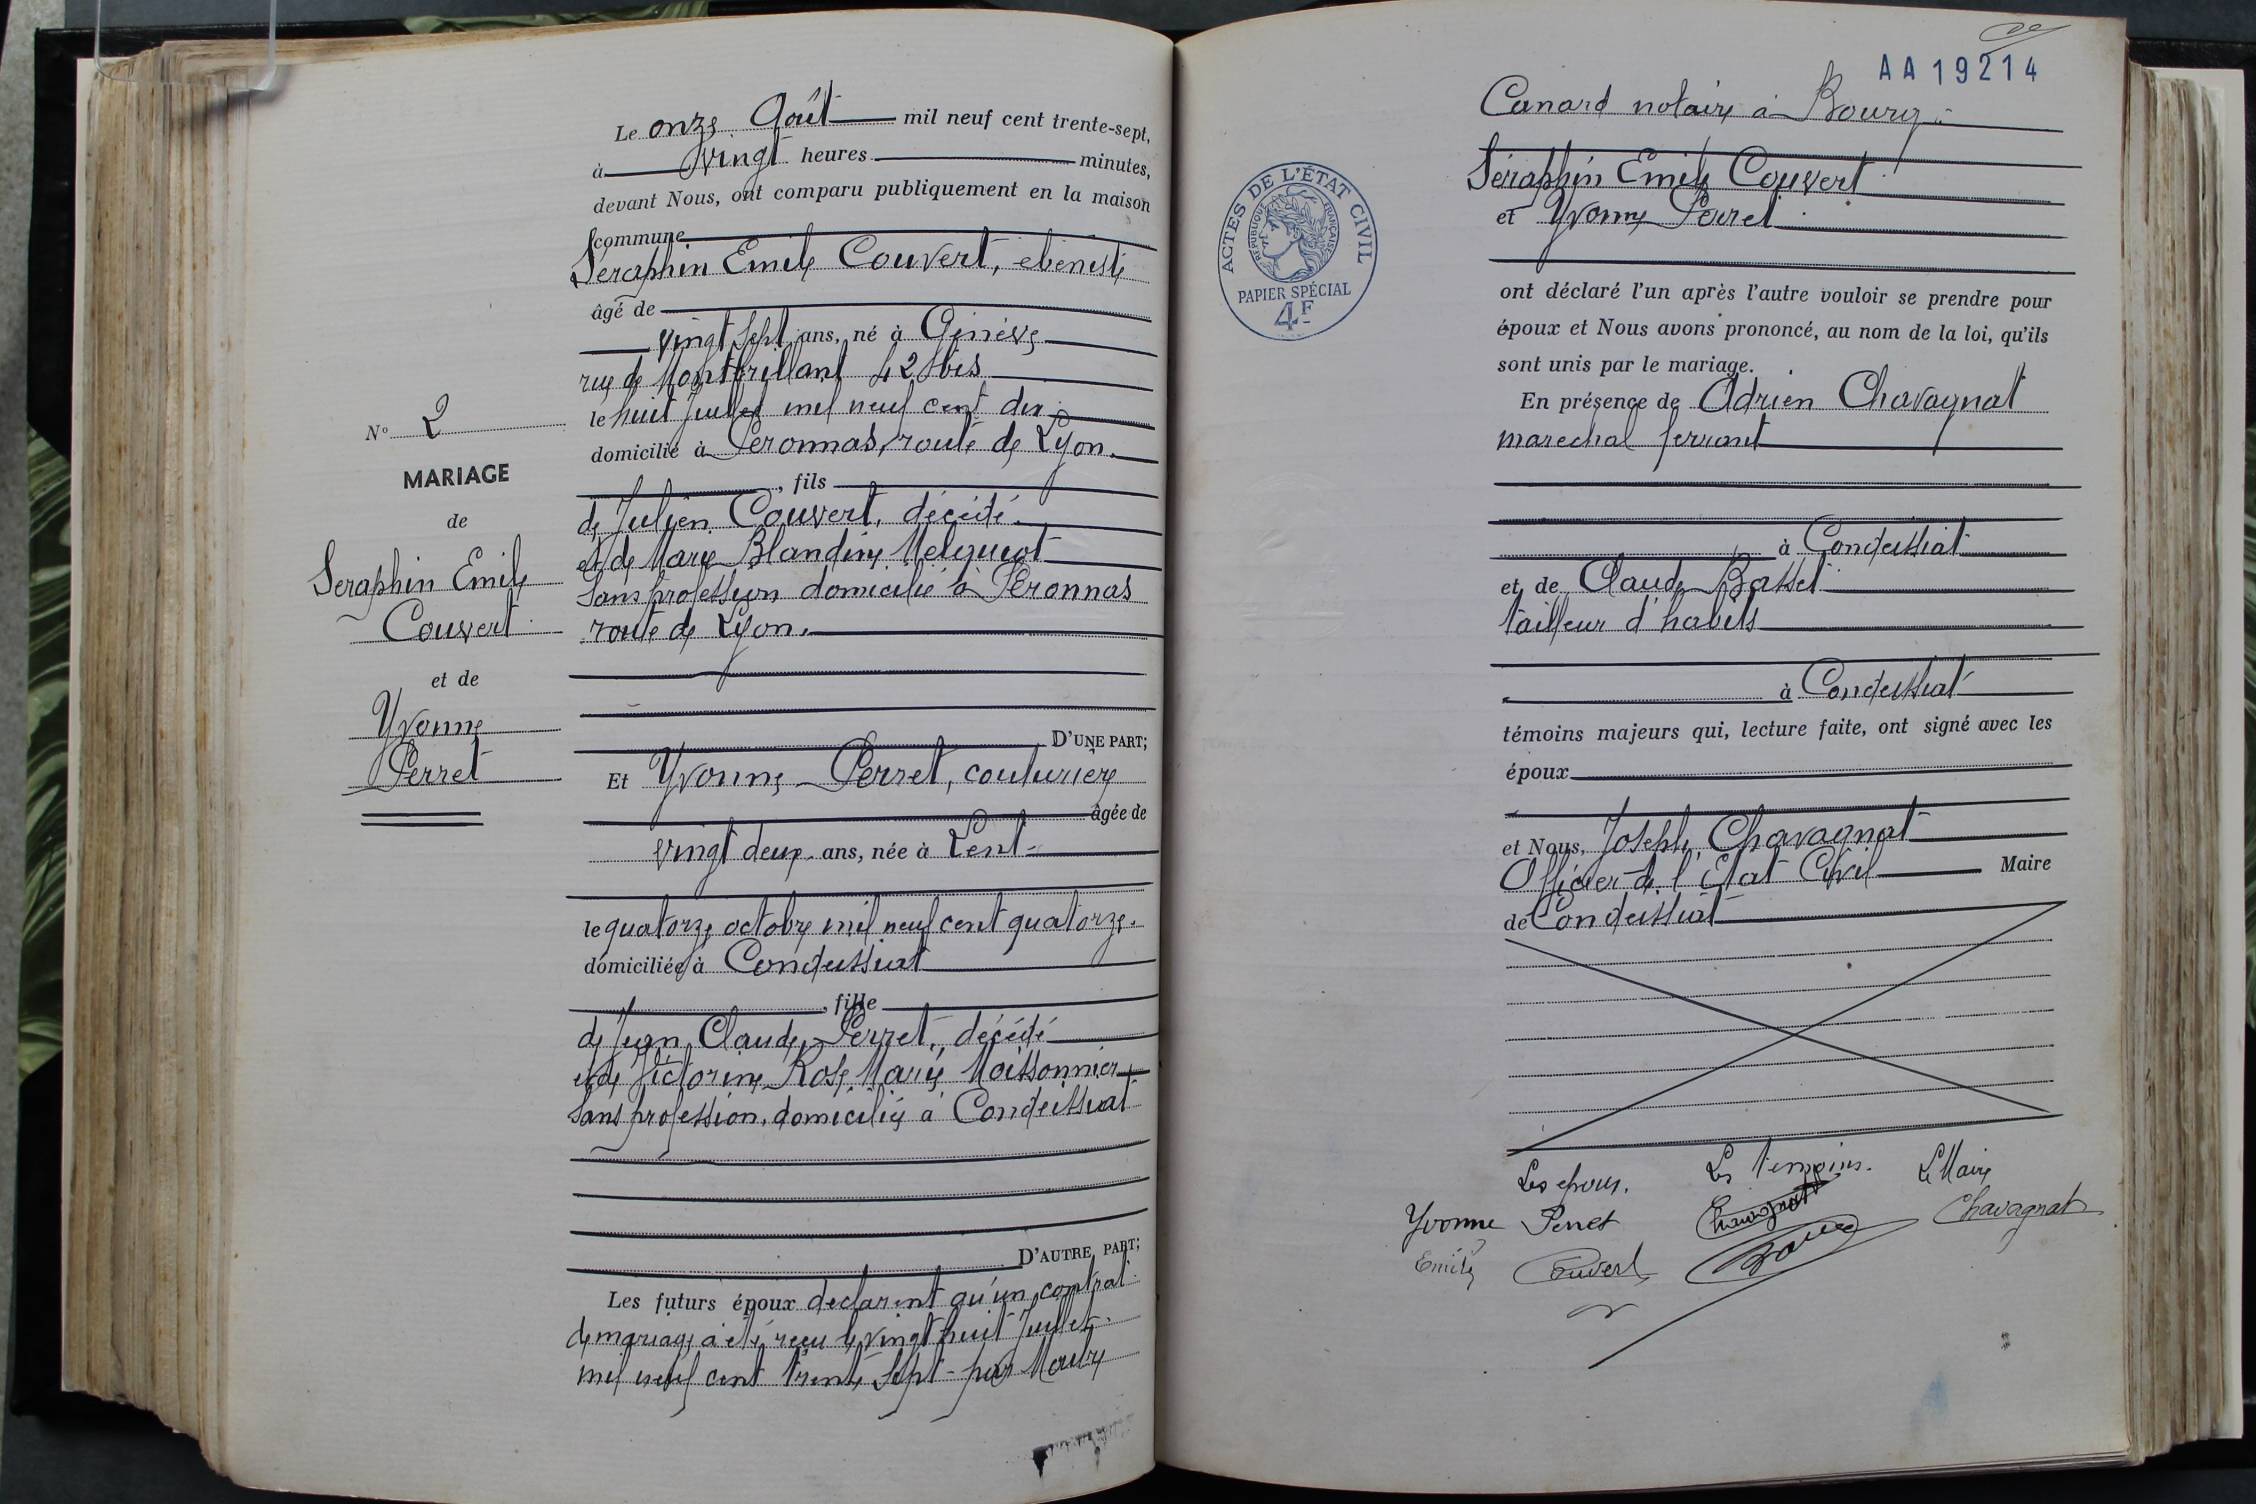 Le onze Août mil neuf cent trente-sept,
à vingt heures minutes,
devant Nous, ont comparu publiquement en la maison
commune
Séraphin Emile Couvert, ébéniste
âgé de
vingt sept ans, né à Genève
rue de Montbrillant 42 bis
le huit Juillet mil neuf cent dix
domicilié à Péronnas, route de Lyon.
, fils
de Julien Couvert, décédé
et de Marie Blandine
sans profession domicilié à Péronnas
route de Lyon.
N° 2
MARIAGE
de
Seraphin Emile
Couvert
et de
Yvonne
Perret
D'UNE PART;
Et Yvonne Perret, couturière
âgée de
vingt deux ans, née à Lent
le quatorze octobre mil neuf cent quatorze.
domiciliée à Condeissiat
, fille
de Jean Claude Perret, décédé
et de Victorine Rose Marie Moissonnier
sans profession, domiciliée à Condeissiat
D'AUTRE PART;
Les futurs époux déclarent qu'un contrat
de mariage a été reçu le vingt huit Juillet
mil neuf cent trente sept par Maître
AA19214
Canard notaire à Bourg
Séraphin Emile Couvert
et Yvonne Perret
ACTES DE L'ÉTAT CIVIL
RÉPUBLIQUE FRANÇAISE
PAPIER SPÉCIAL
4F
ont déclaré l'un après l'autre vouloir se prendre pour
époux et Nous avons prononcé, au nom de la loi, qu'ils
sont unis par le mariage.
En présence de Adrien Chavagnat
marechal ferrant
à Condeissiat
et de Claude Basset
tailleur d'habits
à Condeissiat
témoins majeurs qui, lecture faite, ont signé avec les
époux
et Nous, Joseph Chavagnat
Officier de l'Etat Civil Maire
de Condeissiat
Les époux. Les témoins. Le Maire
Yvonne Perret Chavagnat Chavagnat
Emile Couvert